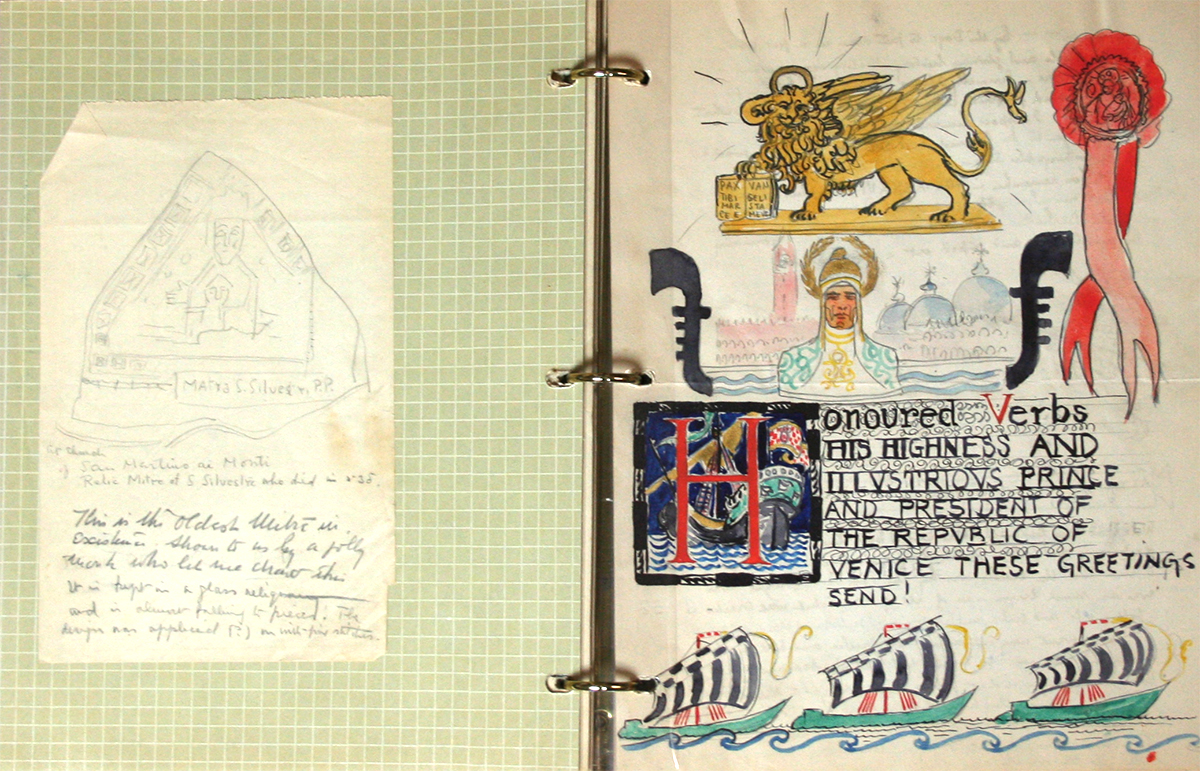 MATRA S. SILVESTRI. P.P.
Church
of San Martino ai Monti
Relic Mitre of S Silvestre who died in
This is the oldest Mitre in
existence. Shown to us by a jolly
monk who let me draw this
It is kept in a glass
and is almost falling to pieces. The
design was appliced (?) on with fine stitches.
PAX VAN
TIBI GELI
MAR STA
CE E MEVS
Honoured Verbs
HIS HIGHNESS AND
ILLVSTRIOVS PRINCE
AND PRESIDENT OF
THE REPVBLIC OF
VENICE THESE GREETINGS
SEND!